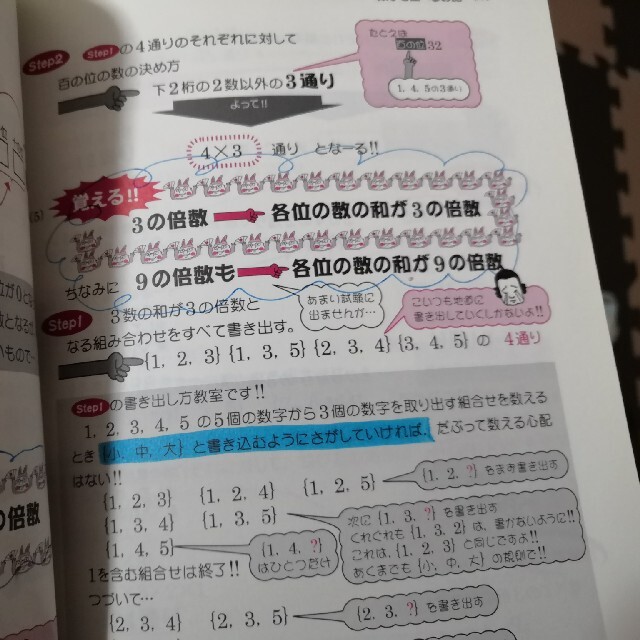 Step2 Step1 の4通りのそれぞれに対して
百の位の数の決め方
下2桁の2数以外の3通り
たとえば
32
1, 4, 5の3通り
よって!!
4×3 通り となーる!!
覚える!!
(3)
3の倍数 各位の数の和が3の倍数
ちなみに 9の倍数も 各位の数の和が9の倍数
あまり試験に
出ませんが…
こいつも地道に
書き出していくしかないよ!!
Step1 3数の和が3の倍数と
なる組み合わせをすべて書き出す。
{1, 2, 3} {1, 3, 5} {2, 3, 4} {3, 4, 5} の 4通り
Step1 の書き出し方教室です!!
1, 2, 3, 4, 5 の5個の数字から3個の数字を取り出す組合せを数える
とき {小, 中, 大} と書き込むようにさがしていければ、だぶって数える心配
はない!!
{1, 2, 3} {1, 2, 4} {1, 2, 5}
{1, 2, ?} をまず書き出す
{1, 3, 4} {1, 3, 5}
次に {1, 3, ?} を書き出す
くれぐれも {1, 3, 2} は、書かないように!!
これは、{1, 2, 3} と同じですよ!!
あくまでも {小, 中, 大} の規則で!!
{1, 4, 5}
{1, 4, ?}
はひとつだけ
1を含む組合せは終了!!
つづいて…
{2, 3, 4} {2, 3, 5}
{2, 3, ?} を書き出す
の倍数